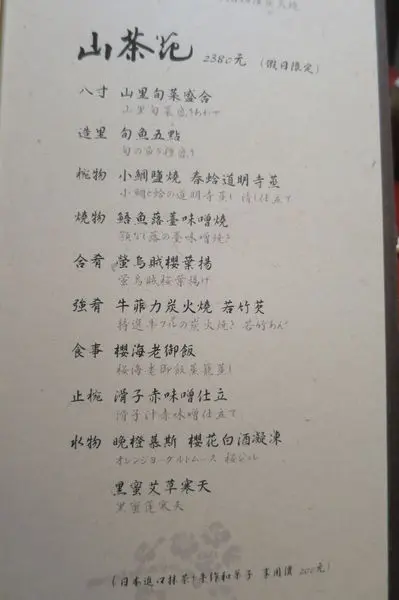 山茶花 2380元 (假日限定)
八寸 山里旬菜盛合
山里旬菜盛りあわせ
造里 旬魚五點
旬の魚5種盛り
椀物 小鯛鹽燒 春蛤道明寺蒸
小鯛と蛤の道明寺蒸し 清し仕立て
燒物 鯌魚落薹味噌燒
味噌焼き
合肴 螢烏賊櫻葉揚
蛍烏賊桜葉揚げ
強肴 牛菲力炭火燒 若竹芡
特選牛フィレの炭火焼き 若竹あん
食事 櫻海老御飯
桜海老御飯蒸籠蒸し
止椀 滑子赤味噌仕立
滑子汁赤味噌仕立て
水物 晚橙慕斯 櫻花白酒凝凍
オレンジヨーグルトムース 桜ジュレ
黑蜜艾草寒天
黒蜜蓬寒天
(日本進口抹茶+手作和菓子 享用價 200元)